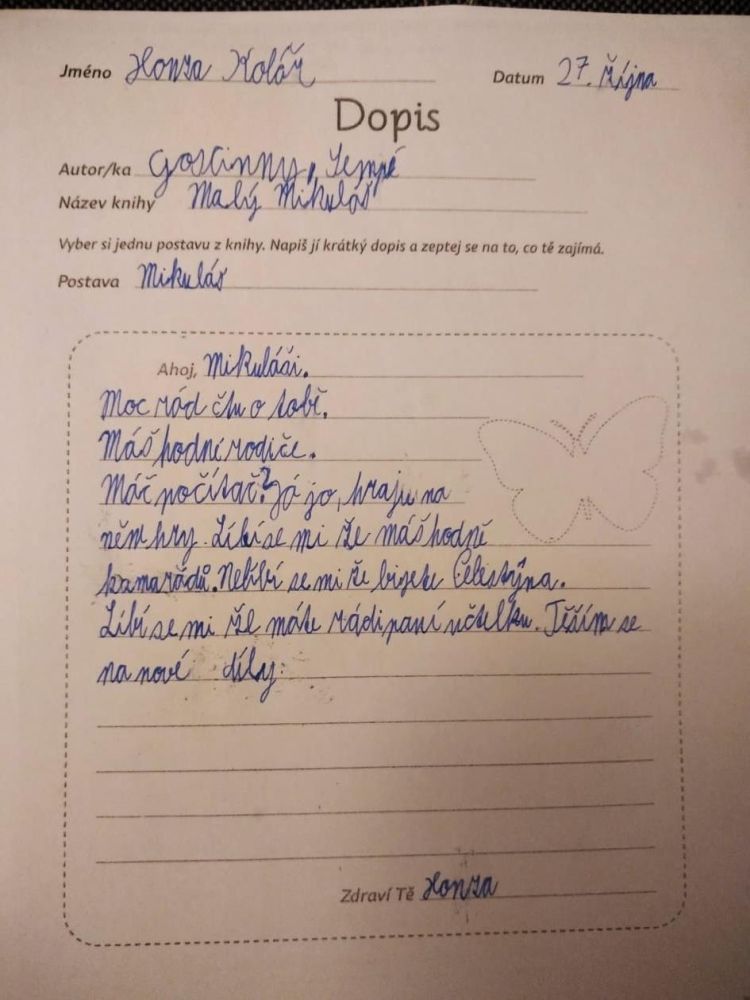 Jméno Honza Kolář Datum 27. října
Dopis
Autor/ka Goscinny, Sempé
Název knihy Malý Mikuláš
Vyber si jednu postavu z knihy. Napiš jí krátký dopis a zeptej se na to, co tě zajímá.
Postava Mikuláš
Ahoj, Mikuláši.
Moc rád čtu o tobě.
Máš hodné rodiče.
Máč počítač? Já jo, hraju na
něm hry. Líbí se mi že máš hodně
kamarádů. Nelíbí se mi že bijete Celestýna.
Líbí se mi že máte rádi paní učtelku. Těším se
na nové díly.
Zdraví Tě Honza